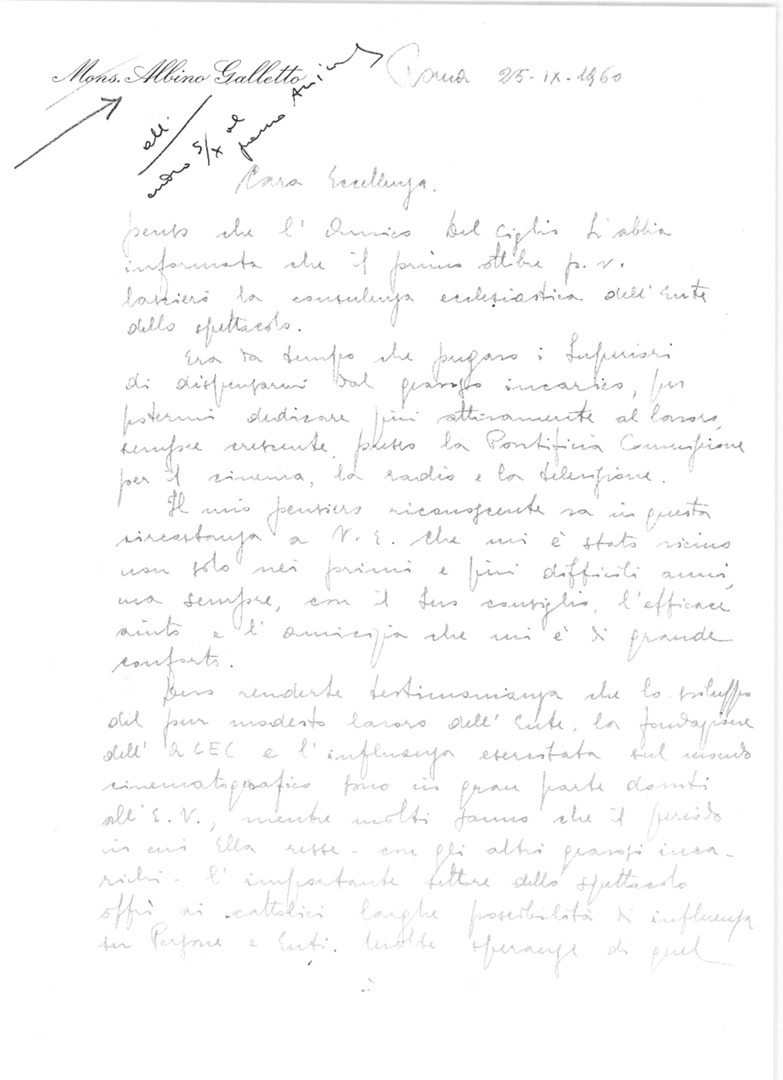 Mons. Albino Galletto
Roma 25-IX-1960
all.
5/X al
Cara Eccellenza.
penso che l'Amico Del Ciglio Ti abbia
informata che il primo ottobre p.v.
lascierò la consulenza ecclesiastica dell'Ente
dello spettacolo.
Era da tempo che pregavo i Superiori
di dispensarmi dal gravoso incarico, per
potermi dedicare più attivamente al lavoro,
sempre crescente, presso la Pontificia Commissione
per il cinema, la radio e la televisione.
Il mio pensiero riconoscente va in questa
circostanza a V. E. che mi è stato vicino
non solo nei primi e più difficili anni,
ma sempre, con il Suo consiglio, l'efficace
aiuto e l'amicizia che mi è di grande
conforto.
Devo renderle testimonianza che lo sviluppo
del pur modesto lavoro dell'Ente, la fondazione
dell'ACEC e l'influenza esercitata sul mondo
cinematografico sono in gran parte dovuti
all'E. V., mentre molti sanno che il periodo
in cui Ella resse - con gli altri gravosi inca-
richi - l'importante settore dello spettacolo
offrì ai cattolici larghe possibilità di influenza
su Persone e Enti. Molte speranze di quel